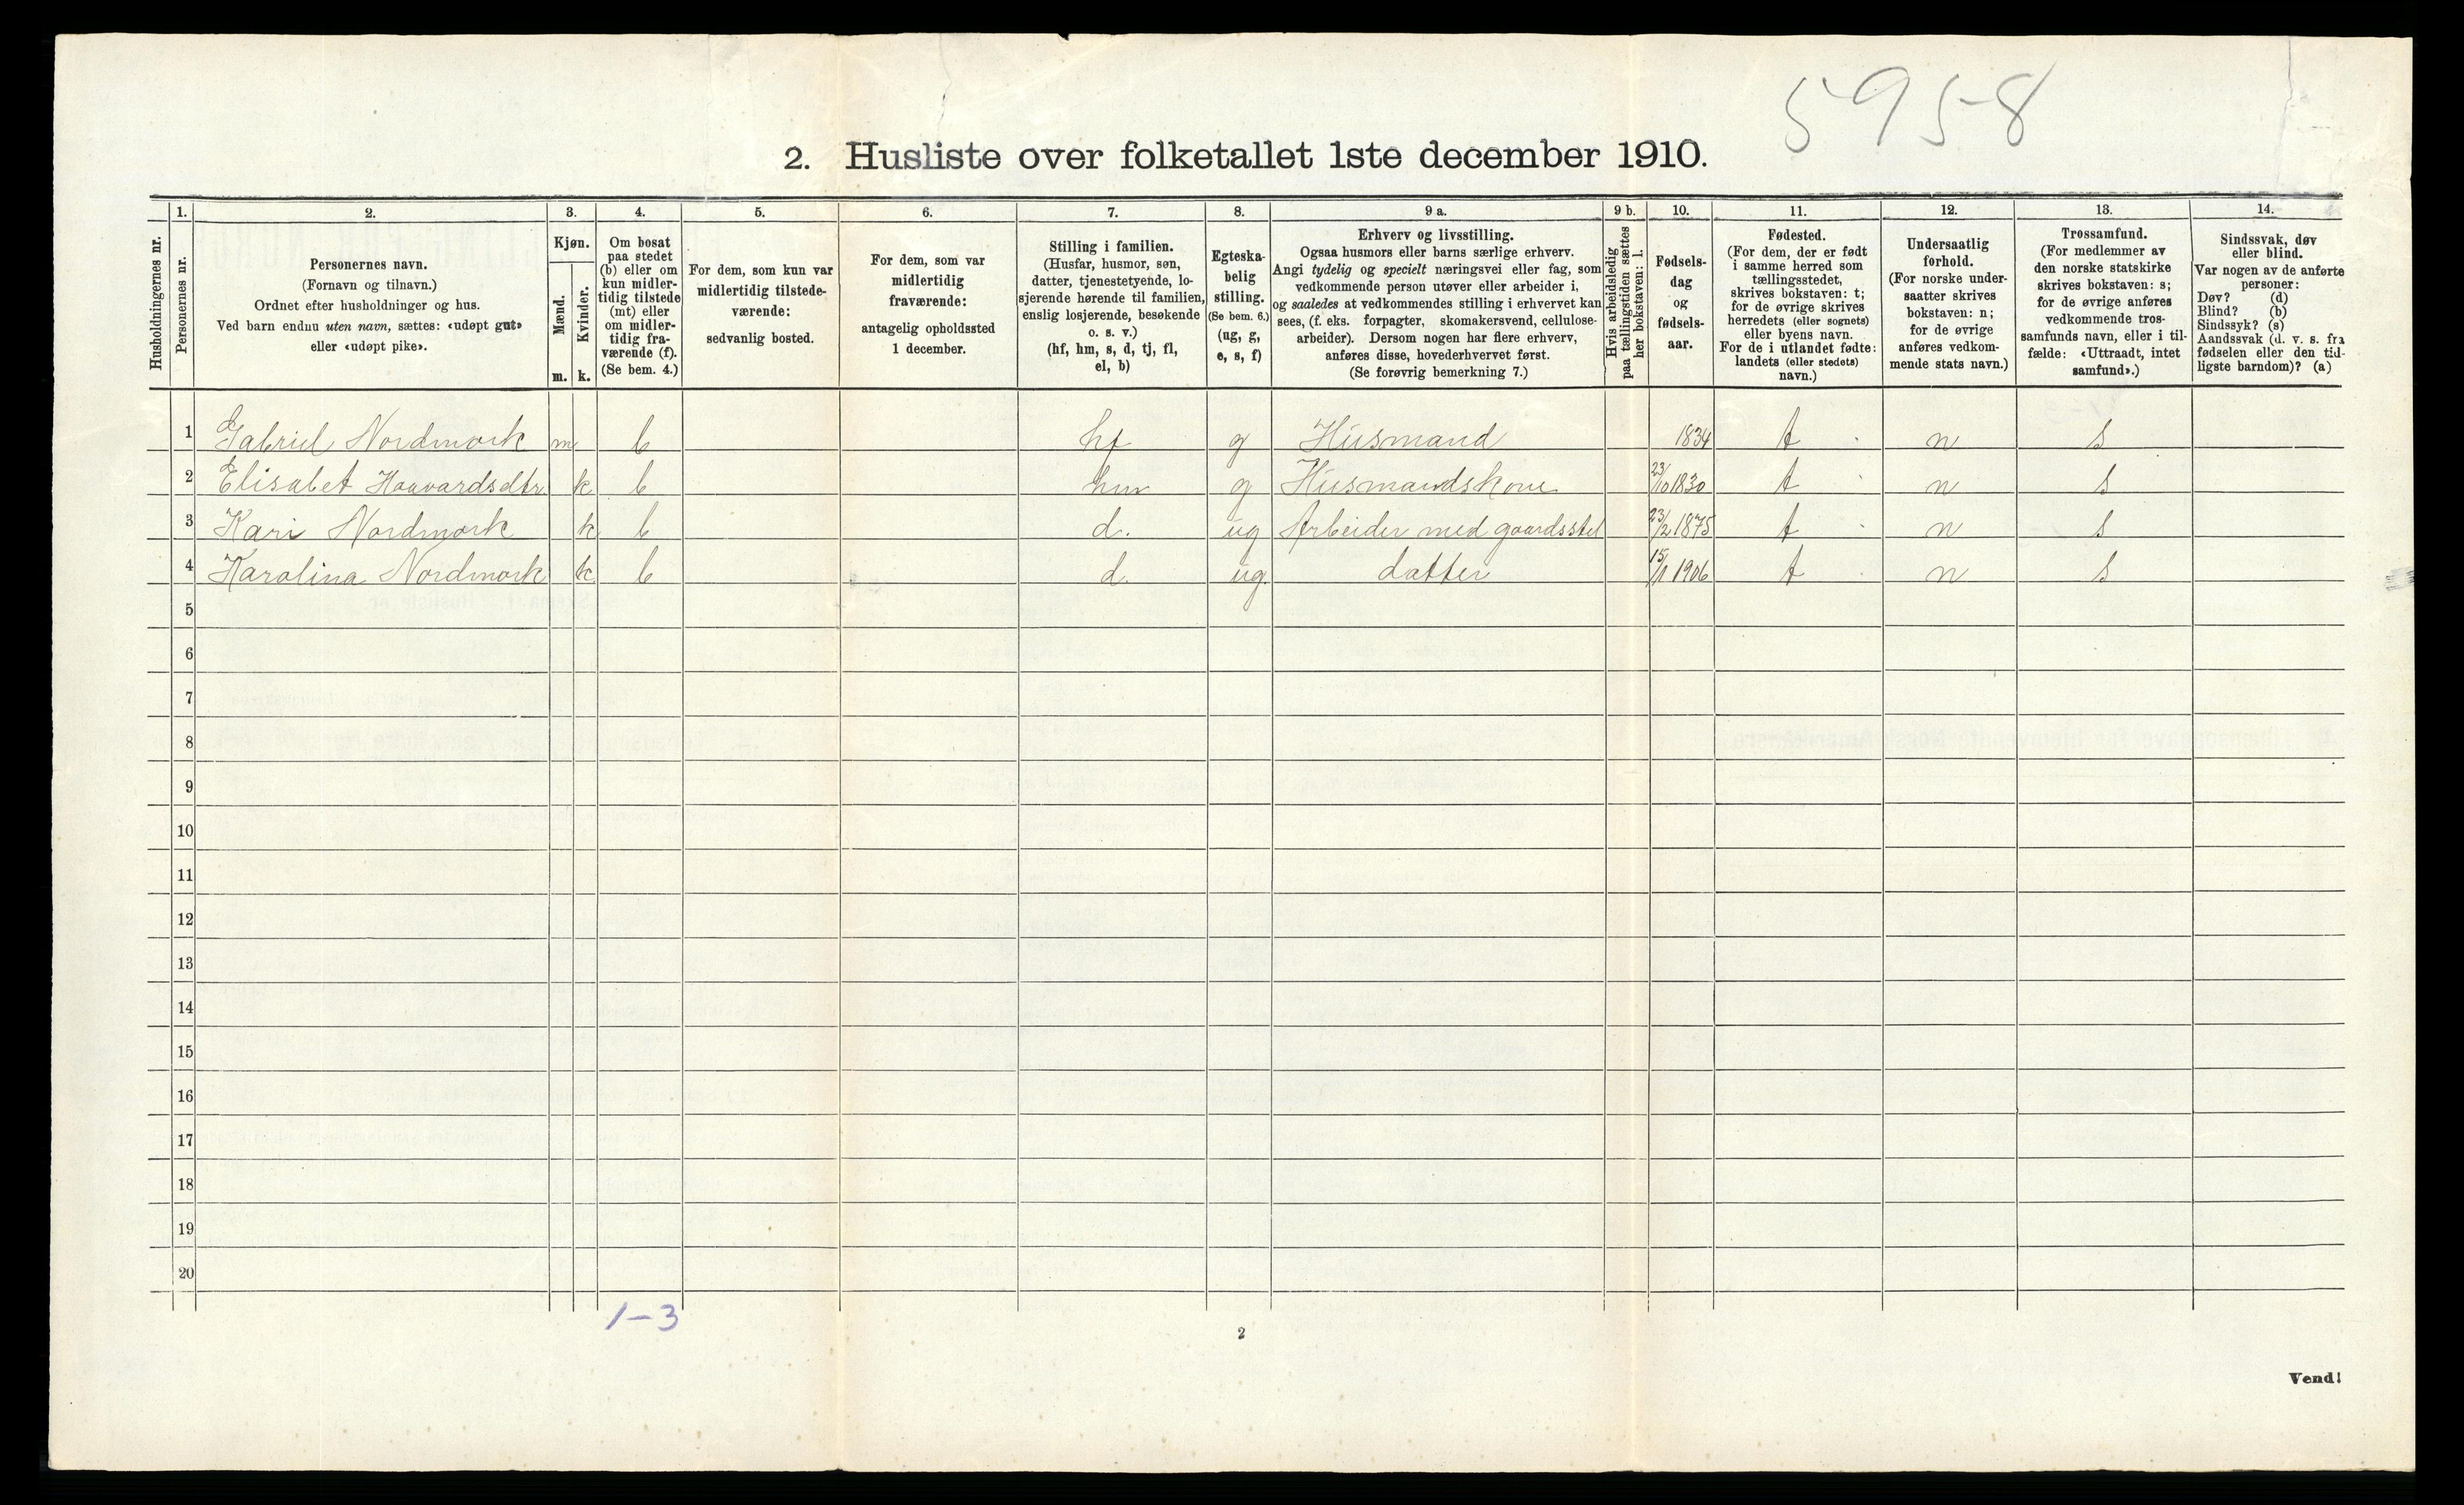 5958
2. Husliste over folketallet 1ste december 1910.
Husholdningernes nr.
1.
Personernes nr.
2.
Personernes navn.
(Fornavn og tilnavn.)
Ordnet efter husholdninger og hus.
Ved barn endnu uten navn, sættes: «udøpt gut»
eller «udøpt pike».
3.
Kjøn.
Mænd.
Kvinder.
m. k.
4.
Om bosat
paa stedet
(b) eller om
kun midler-
tidig tilstede
(mt) eller
om midler-
tidig fra-
værende (f).
(Se bem. 4.)
5.
For dem, som kun var
midlertidig tilstede-
værende:
sedvanlig bosted.
6.
For dem, som var
midlertidig
fraværende:
antagelig opholdssted
1 december.
7.
Stilling i familien.
(Husfar, husmor, søn,
datter, tjenestetyende, lo-
sjerende hørende til familien,
enslig losjerende, besøkende
o. s. v.)
(hf, hm, s, d, tj, fl,
el, b)
8.
Egteska-
belig
stilling.
(Se bem. 6.)
(ug, g,
e, s, f)
9 a.
Erhverv og livsstilling.
Ogsaa husmors eller barns særlige erhverv.
Angi tydelig og specielt næringsvei eller fag, som
vedkommende person utøver eller arbeider i,
og saaledes at vedkommendes stilling i erhvervet kan
sees, (f. eks. forpagter, skomakersvend, cellulose-
arbeider). Dersom nogen har flere erhverv,
anføres disse, hovederhvervet først.
(Se forøvrig bemerkning 7.)
9 b.
Hvis arbeidsledig
paa tællingstiden sættes
her bokstaven: l.
10.
Fødsels-
dag
og
fødsels-
aar.
11.
Fødested.
(For dem, der er født
i samme herred som
tællingsstedet,
skrives bokstaven: t;
for de øvrige skrives
herredets (eller sognets)
eller byens navn.
For de i utlandet fødte:
landets (eller stedets)
navn.)
12.
Undersaatlig
forhold.
(For norske under-
saatter skrives
bokstaven: n;
for de øvrige
anføres vedkom-
mende stats navn.)
13.
Trossamfund.
(For medlemmer av
den norske statskirke
skrives bokstaven: s;
for de øvrige anføres
vedkommende tros-
samfunds navn, eller i til-
fælde: «Uttraadt, intet
samfund».)
14.
Sindssvak, døv
eller blind.
Var nogen av de anførte
personer:
Døv? (d)
Blind? (b)
Sindssyk? (s)
Aandssvak (d. v. s. fra
fødselen eller den tid-
ligste barndom)? (a)
1 Gabriel Nordmork m b hf g Husmand 1834 t n s
2 Elisabet Haavardsdtr. k b hm g Husmandskone 23/10 1830 t n s
3 Kari Nordmork k b d. ug Arbeider med gaardsstel 23/2 1875 t n s
4 Karolina Nordmork k b d. ug. datter 15/11 1906 t n s
5
6
7
8
9
10
11
12
13
14
15
16
17
18
19
20
1-3
2
Vend!